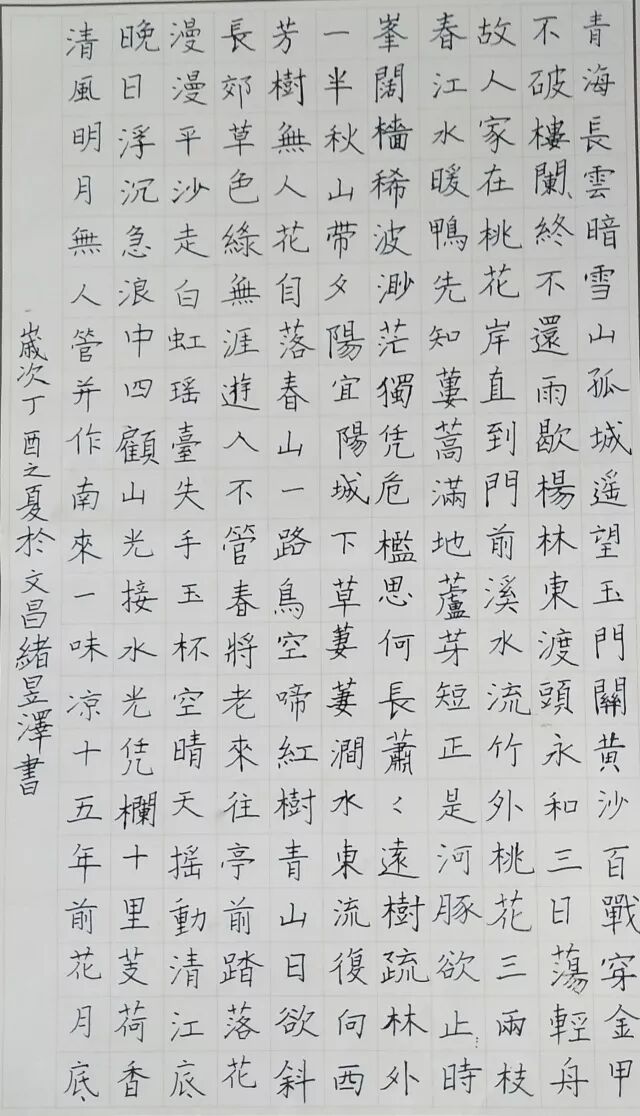 青海長雲暗雪山孤城遥望玉門關黄沙百戰穿金甲
不破樓闌終不還雨歇楊林東渡頭永和三日蕩輕舟
故人家在桃花岸直到門前溪水流竹外桃花三兩枝
春江水暖鴨先知蔞蒿滿地蘆芽短正是河豚欲止時
峯闊檣稀波渺茫獨凭危檻思何長蕭〻遠樹疏林外
一半秋山帶夕陽宜陽城下草萋萋澗水東流復向西
芳樹無人花自落春山一路鳥空啼紅樹青山日欲斜
長郊草色綠無涯遊人不管春將老來往亭前踏落花
漫漫平沙走白虹瑶臺失手玉杯空晴天摇動清江底
晚日浮沉急浪中四顧山光接水光凭欄十里芰荷香
清風明月無人管并作南來一味凉十五年前花月底
歲次丁酉之夏於文昌緒昱澤書